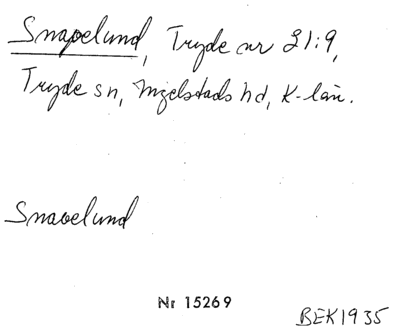 Snapelund, Tryde nr 21:9,
Tryde sn, Ingelstads hd, K-län.
Snavelund
Nr 15269
BEK1935